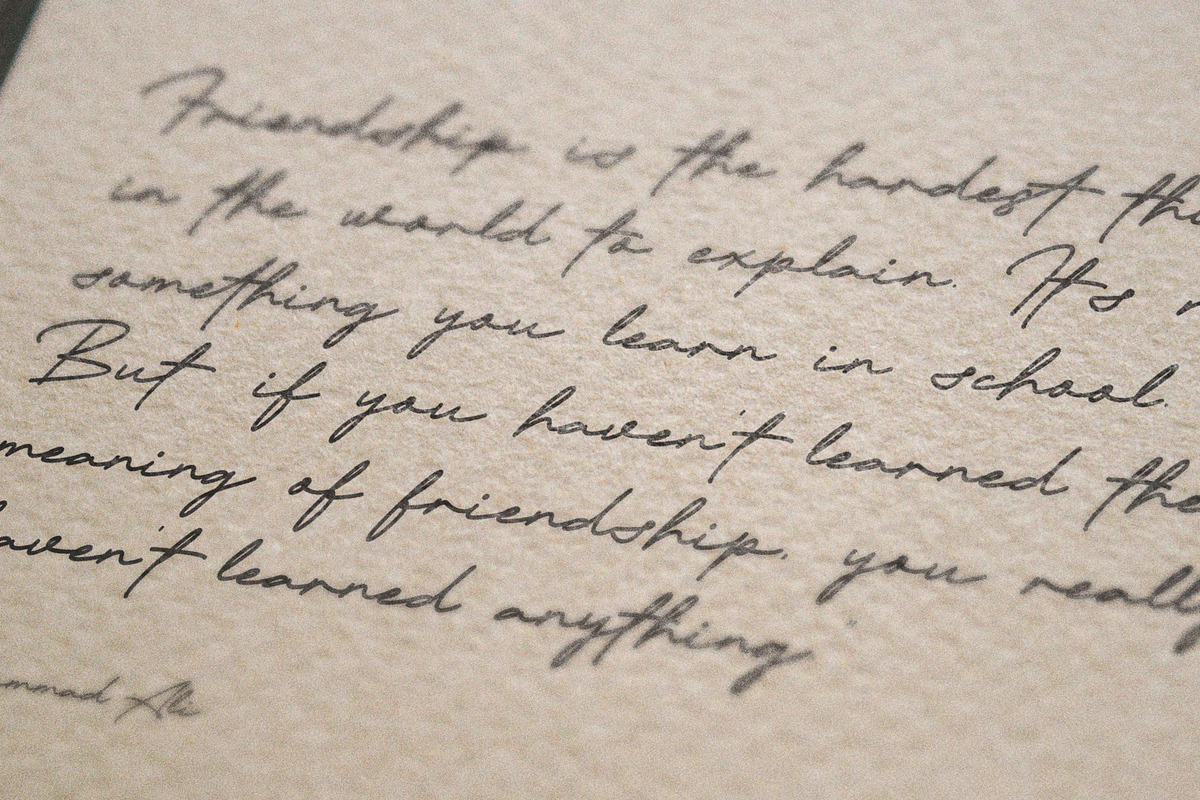 Friendship is the hardest thi
in the world to explain. It's n
something you learn in school.
But if you haven't learned the
meaning of friendship, you really
aven't learned anything
mmad Ali